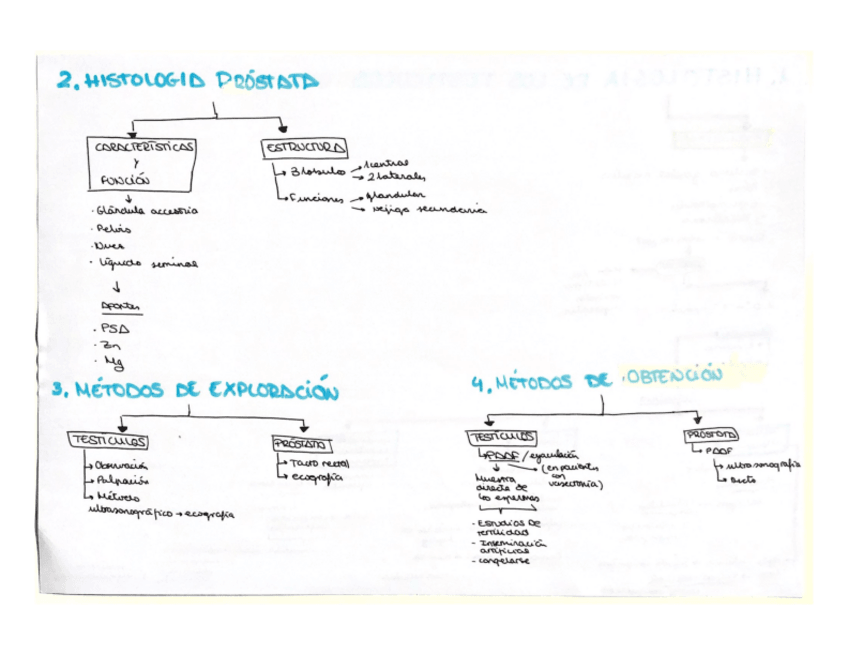 2. HISTOLOGIA PRÓSTATA
CARACTERÍSTICAS
Y
FUNCIÓN
· Glándula accesoria
· Pelvis
· Nuez
· Líquido seminal
Aportan
· PSA
· Zn
· Mg
ESTRUCTURA
3 lóbulos
1 central
2 laterales
Funciones
glandular
vejiga secundaria
3. MÉTODOS DE EXPLORACIÓN
TESTÍCULOS
Observación
Palpación
Método
ultrasonográfico → ecografía
PRÓSTATA
Tacto rectal
ecografía
4. MÉTODOS DE OBTENCIÓN
TESTÍCULOS
PAAF / eyaculación
(en pacientes
con
vasectomía)
Muestra
directa de
los espermas
- Estudios de
fertilidad
- Inseminación
artificial
- congelarse
PRÓSTATA
PAAF
ultrasonografía